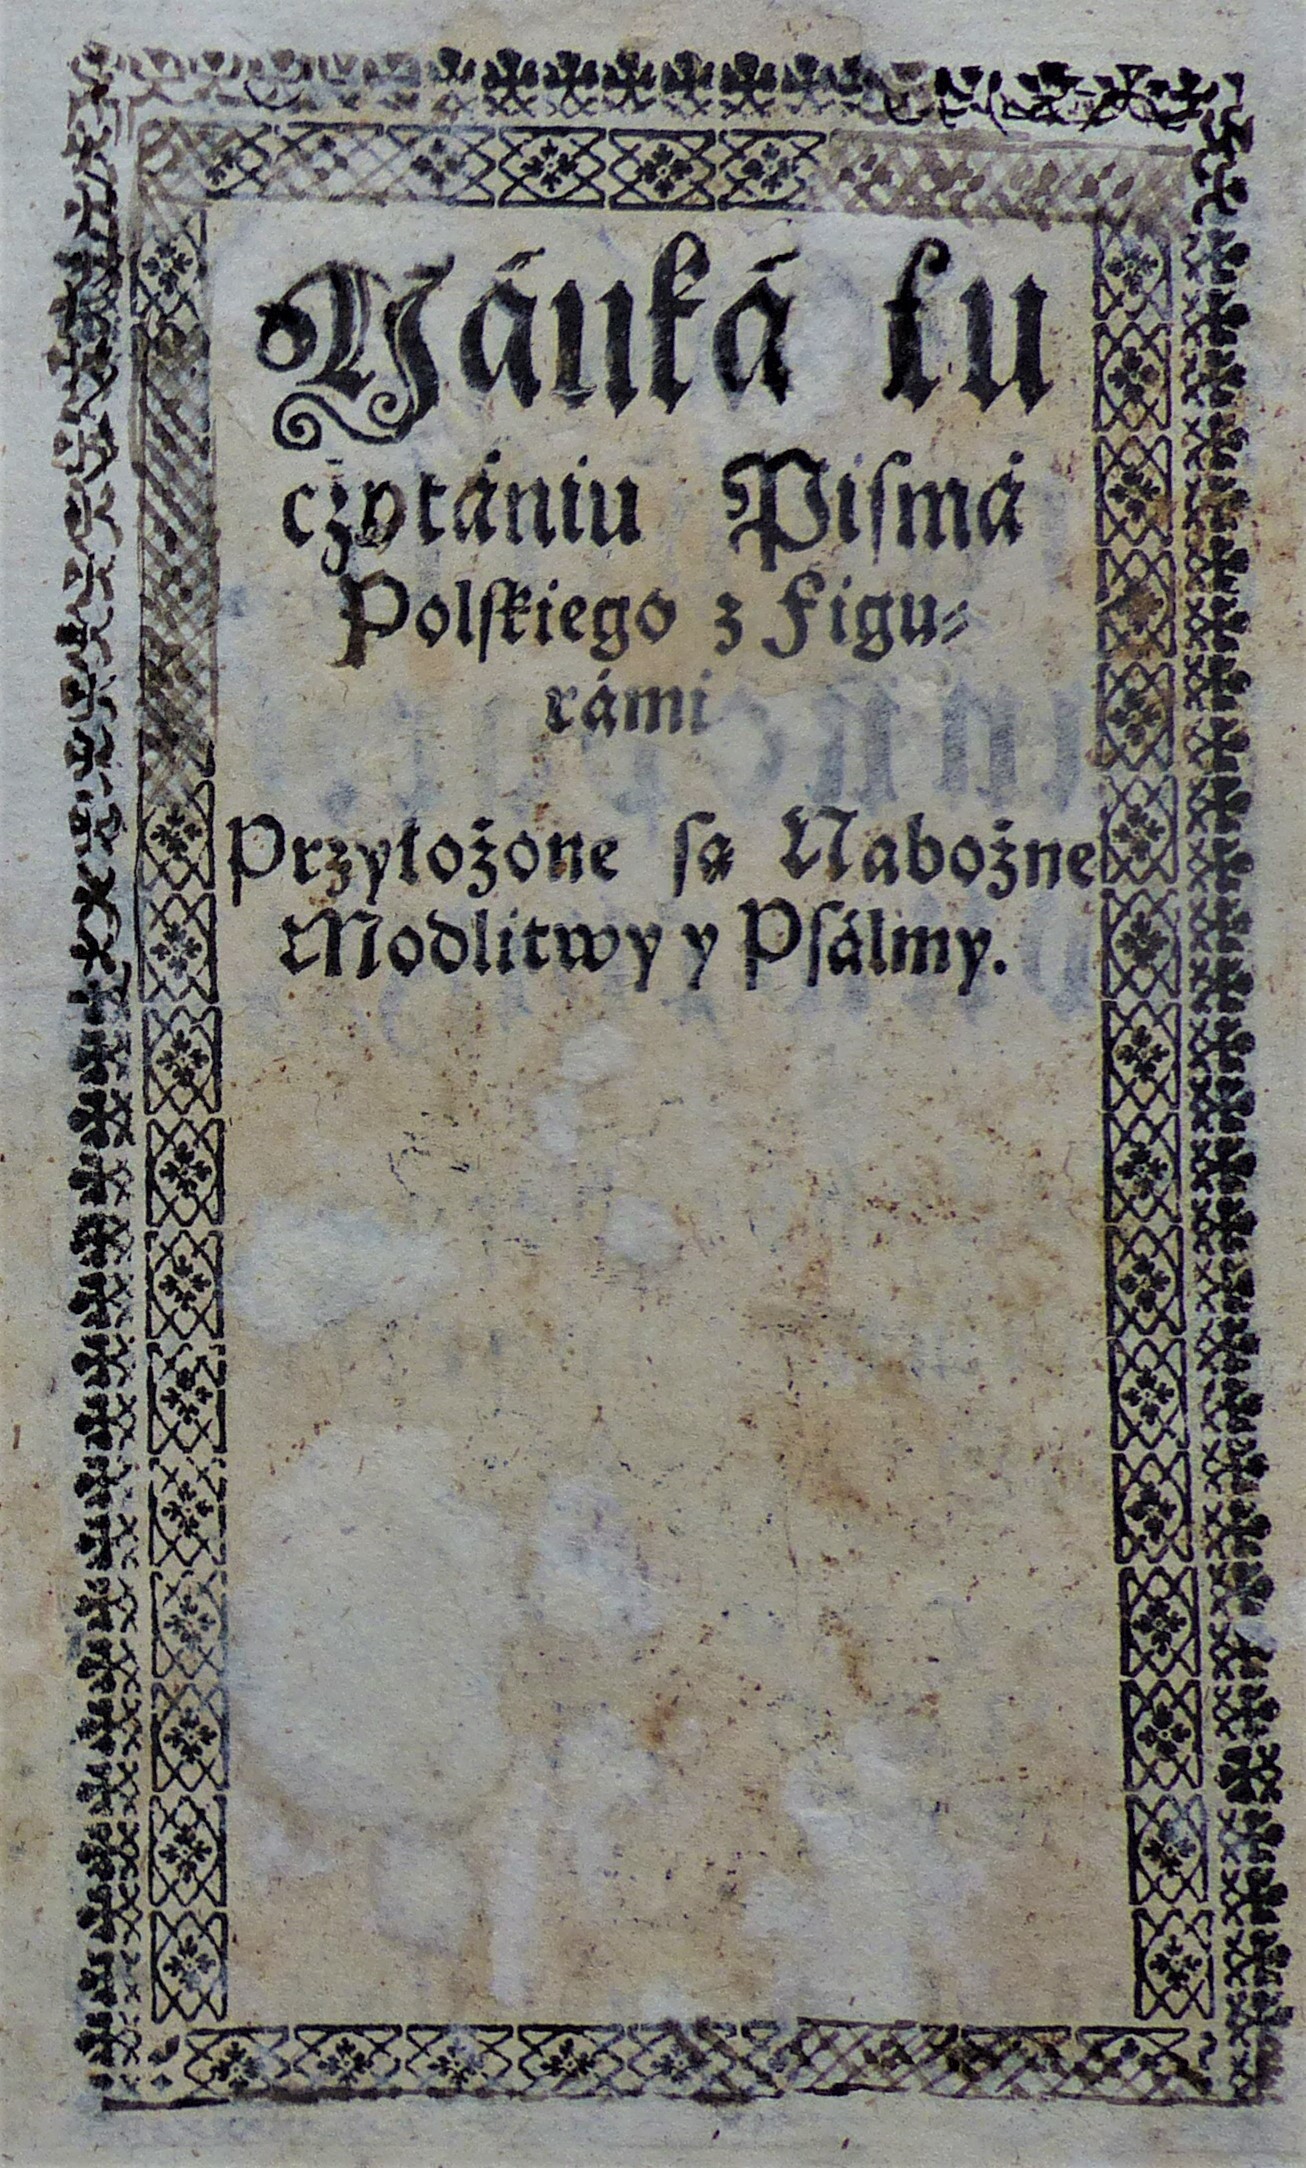 Náuká ku
czytániu Pismá
Polskiego z Figu⸗
rámi
Przyłożone są Nabożne
Modlitwy y Psálmy.